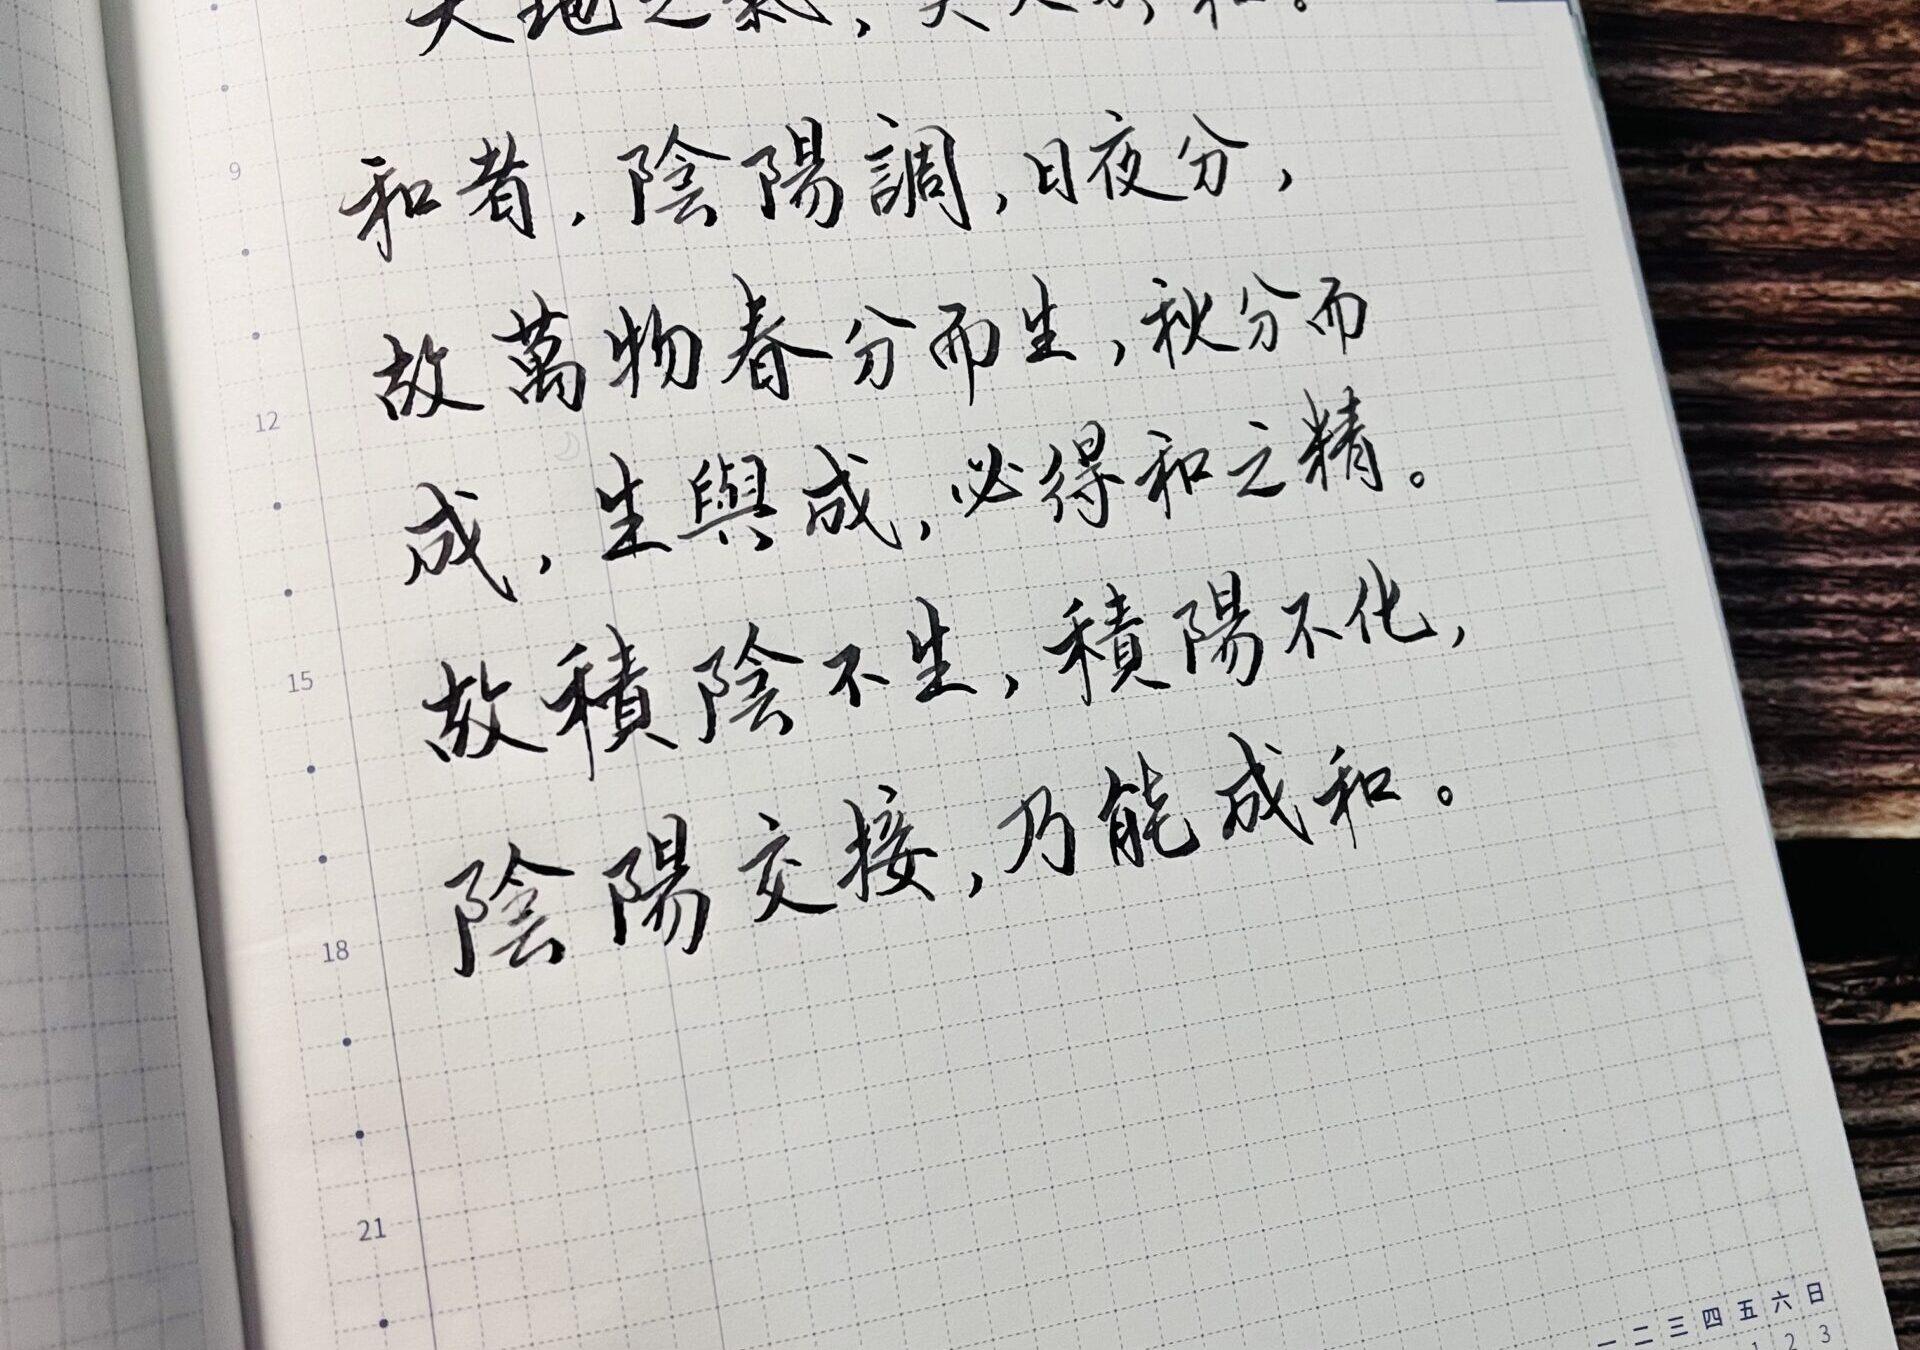 天地之氣，莫大於和。
和者，陰陽調，日夜分，
故萬物春分而生，秋分而
成，生與成，必得和之精。
故積陰不生，積陽不化，
陰陽交接，乃能成和。
9
12
15
18
21
一 二 三 四 五 六 日
1 2 3